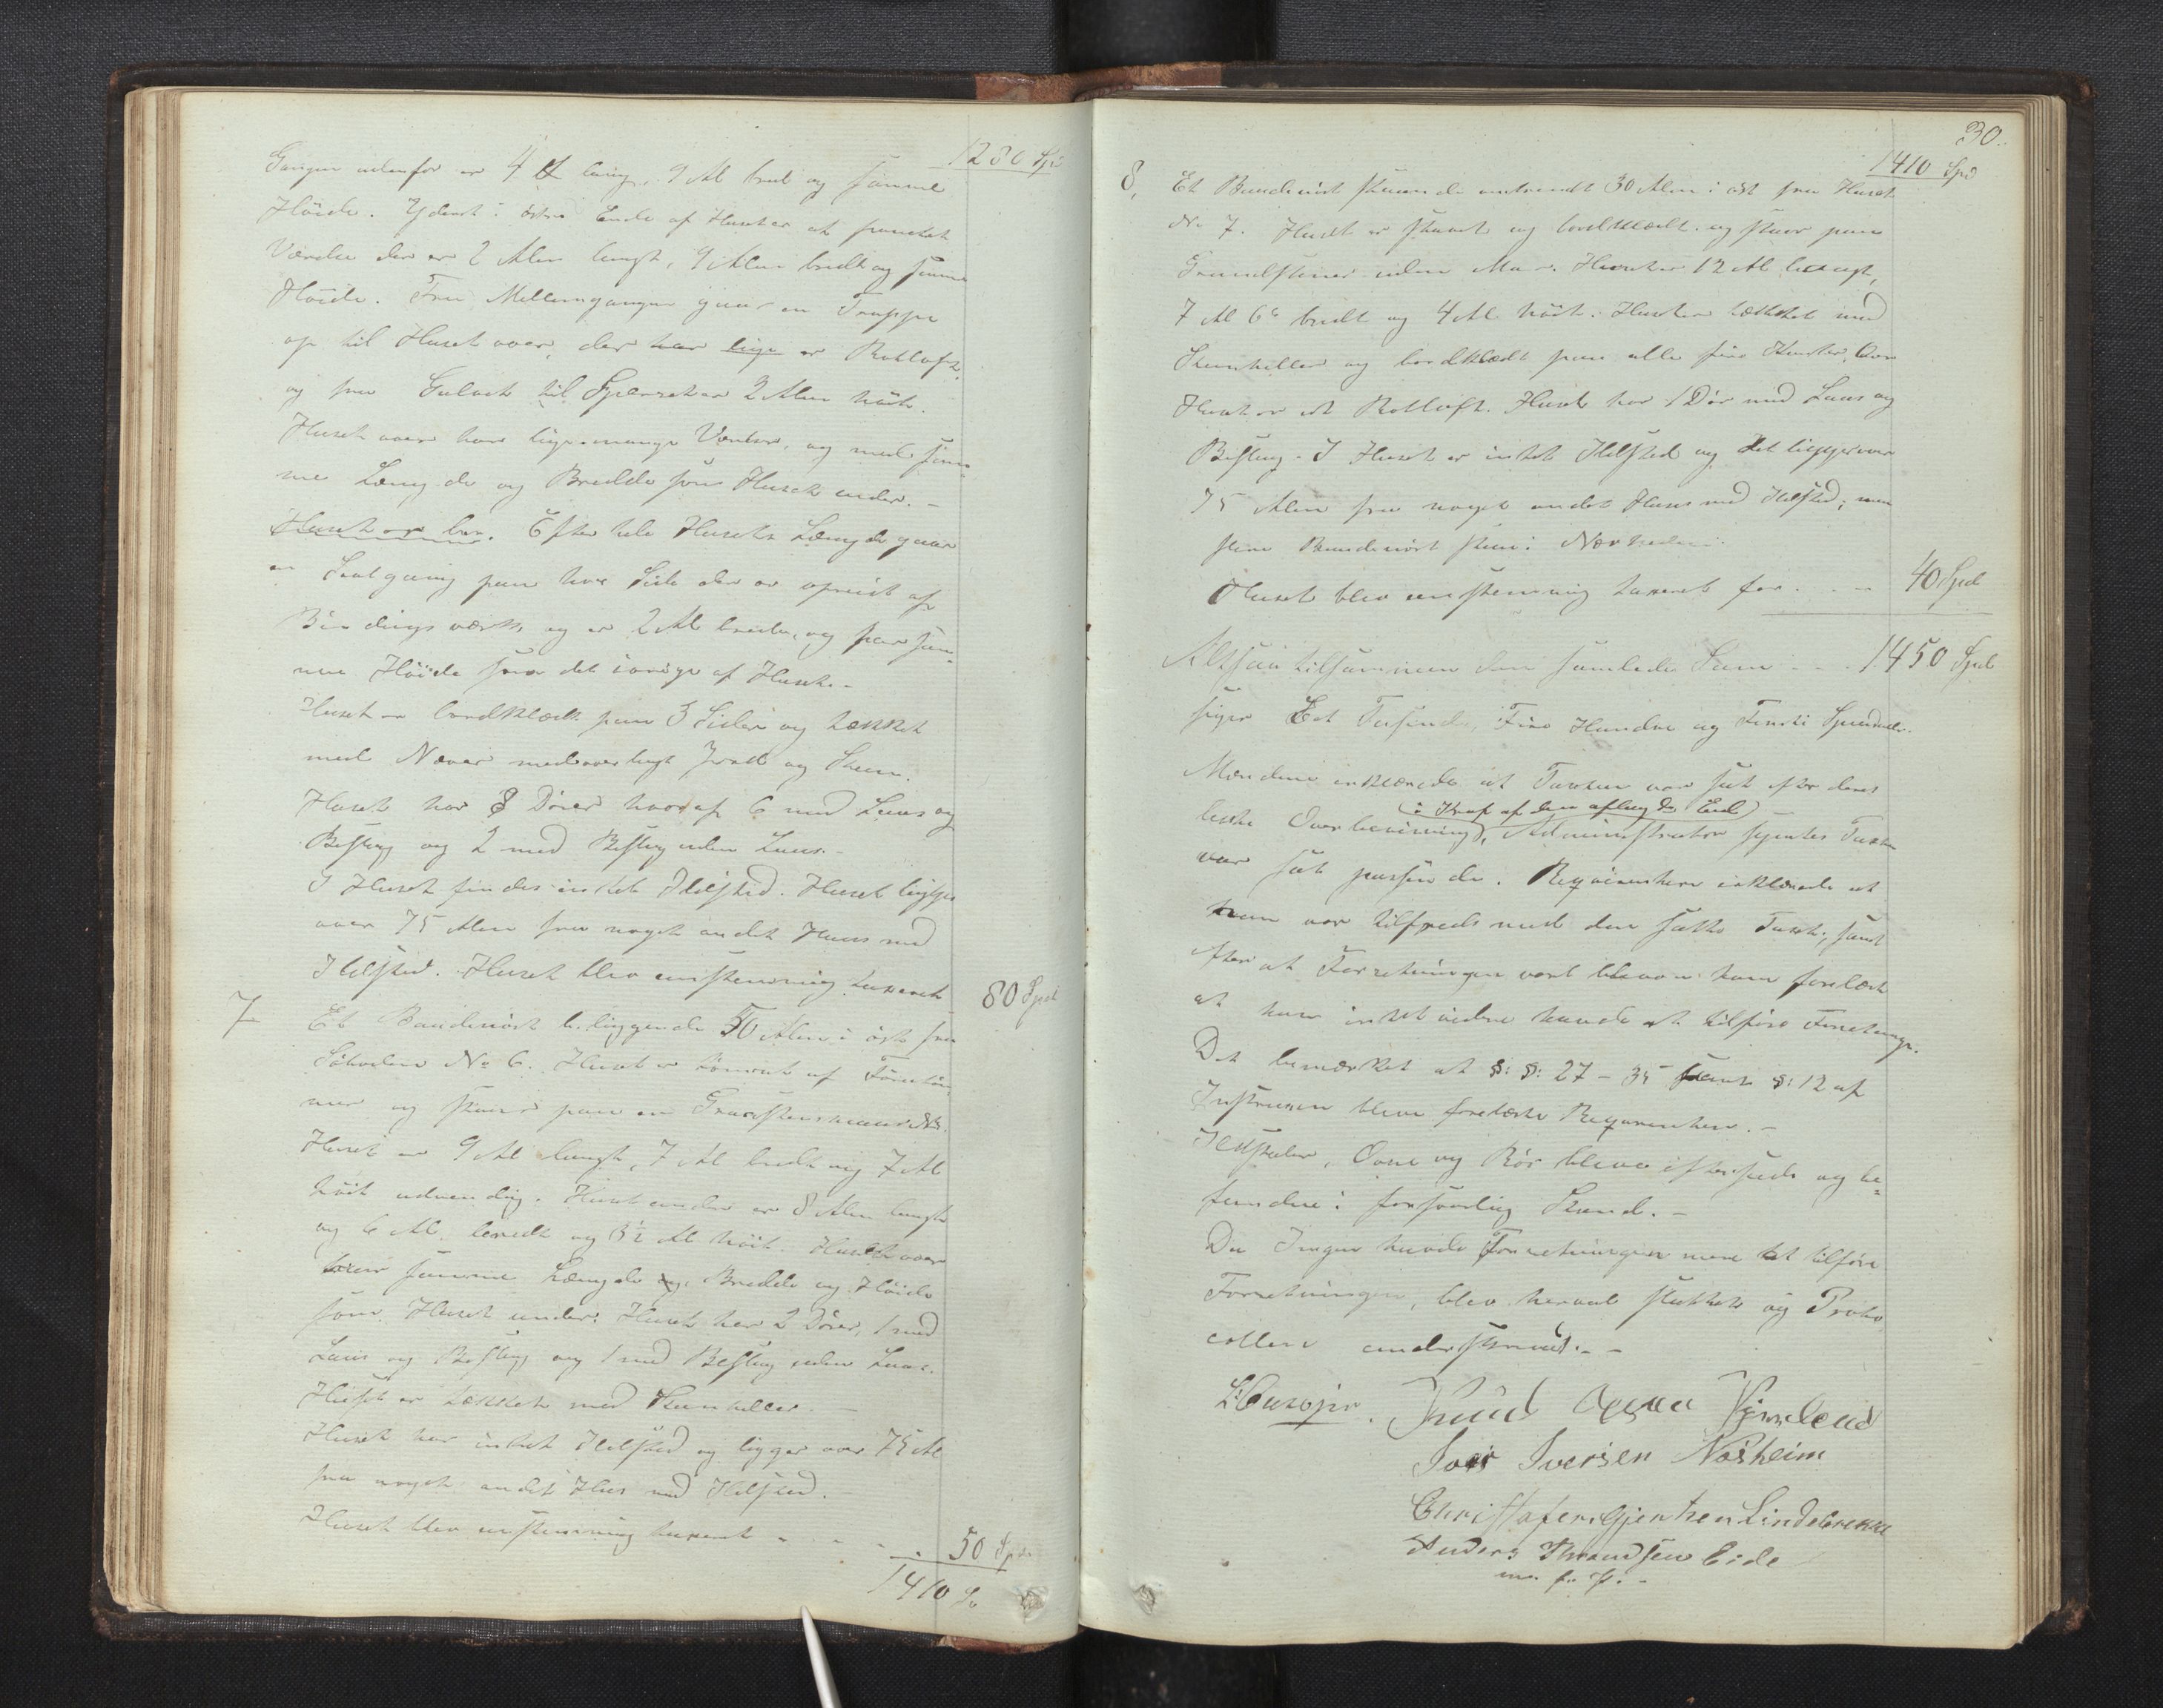 1280 Spd
Gangen udenfor er 4 Al lang, 9 Al bred og samme
Høide. Yderst i østre Ende af Huset er et
Værelse der er 2 Alen langt, 9 Alen bredt og samme
Høide. Fra Mellemgangen gaar en Trappe
op til Huset over, der er Rotloft
og fra Gulvet til Sperret er 2 Alen høit.
Huset over har lige mange Værelser, og med sam-
me Længde og Bredde som Huset under. -
Huset over har. Efter hele Husets Længde gaar
en Svalgang paa hver Side der er opreist af
Bindingsværk og er 2 Al brede, og har sam-
me Høide som det øvrige af Huset. -
Huset er bordklædt paa 3 Sider og tækket
med Næver med overlagt Jord og Steen.
Huset har 8 Dører hvoraf 6 med Laas og
Beslag og 2 med Beslag uden Laas. -
I Huset findes intet Ildsted. Huset ligger
over 75 Alen fra noget andet Huus med
Ildsted. Huset blev enstemmig taxeret 80 Spd
7 Et Bandenøst beliggende 50 Alen i øst fra
Søboden No 6. Huset er tømret af Furutøm-
mer og staar paa en Graastensmuur.
Huset er 9 Al langt, 7 Al bredt og 7 Al
høit udvendig. Huset under er 8 Alen langt
og 6 Al. bredt og 3½ Al høit. Huset over
har samme Længde og Bredde og Høide
som Huset under. Huset har 2 Dører, 1 med
Laas og Beslag og 1 med Beslag uden Laas.
Huset er tækket med Steenheller. -
Huset har intet Ildsted og ligger over 75 Al
fra noget andet Huus med Ildsted.
Huset blev enstemmig taxeret - - - . 50 Spd
1410 Sp
30.
1410 Spd
8, Et Bandenøst staaende omtrendt 30 Alen i øst fra Huset
No 7. Huset er og bordklædt og staar paa
Grundstener uden Muur. Huset er 12 Al langt,
7 Al 6" bredt og 4 Al høit. Huset er tækket med
Steenheller og bordklædt paa alle fire Kanter. Over
Huset er et Rotloft. Huset har 1 Dør med Laas og
Beslag. I Huset er intet Ildsted og det ligger over
75 Alen fra noget andet Huus med Ildsted; men
flere Bandenøst staa i Nærheden.
Huset blev enstemmig taxeret for . . - - 40 Spd
Altsaa tilsammen den samlede Sum - - . 1450 Spd
siger Eet Tusinde, Fire Hundre og Femti Speciedaler.
Mændene erklærede at Taxten var sat efter deres
(i Kraft af den aflagde Eed)
bedste Overbeviisning, Administrator syntes Taxten
var sat passende. Reqvirenten erklærede at
han var tilfreds med den satte Taxt, samt
efter at Forretningen var bleven ham forelæst
at han intet videre havde at tilføre Forretningen.
Det bemærkes at §: §: 27 - 35 samt §: 12 af
Instruxen bleve forelæste Reqvirenten. -
Ildsteder, Ovne og Rør bleve efterseede og be-
fundne i forsvarlig Stand. -
Da Ingen havde Forretningen mere at tilføre
Forretningen, blev herved sluttet og Proto
collen underskrevet. -
Knud
Iver Iversen Næsheim
Christafer Gjertsen Lindebrekke
Anders Thrandsen Eide
m. f. P. -